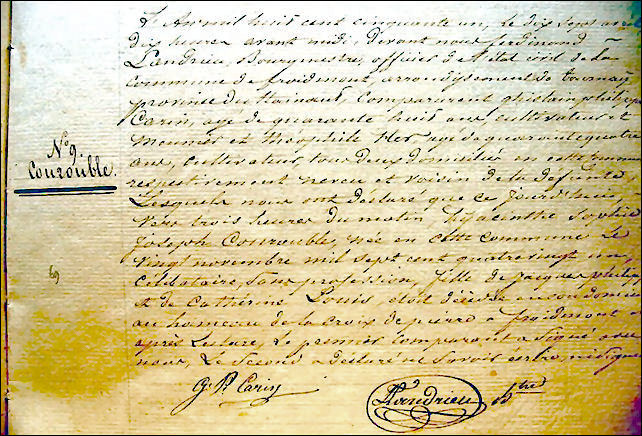 L'An mil huit cent cinquante un, le dix sept avril
dix heures avant midi, devant nous ferdinand
Landrieu, Bourgmestre, officier de l'état civil de la
commune de froidmont, arrondissement de tournay
province du Hainaut, comparurent ghislain philippe
Carin, age de quarante huit ans cultivateur et
meunier et théophile agé de quarante quatre
ans, cultivateur, tous deux domiciliés en cette commune
respectivement neveu et voisin de la défunte
Lesquels nous ont déclaré que ce jourd'hui,
vers trois heures du matin hyacinthe Sophie
Joseph Courouble, née en cette commune le
vingt novembre mil sept cent quatre vingt un,
célibataire, sans profession, fille de Jacques philippe
et de Catherine Louis, etoit décédée en son domicile
au hameau de la croix de pierre a froidmont &
après lecture, Le premier comparant a signé avec
nous, Le second a déclaré ne savoir écrire, ni signer
N° 9
Courouble.
G. P. Carin
Landrieu btre